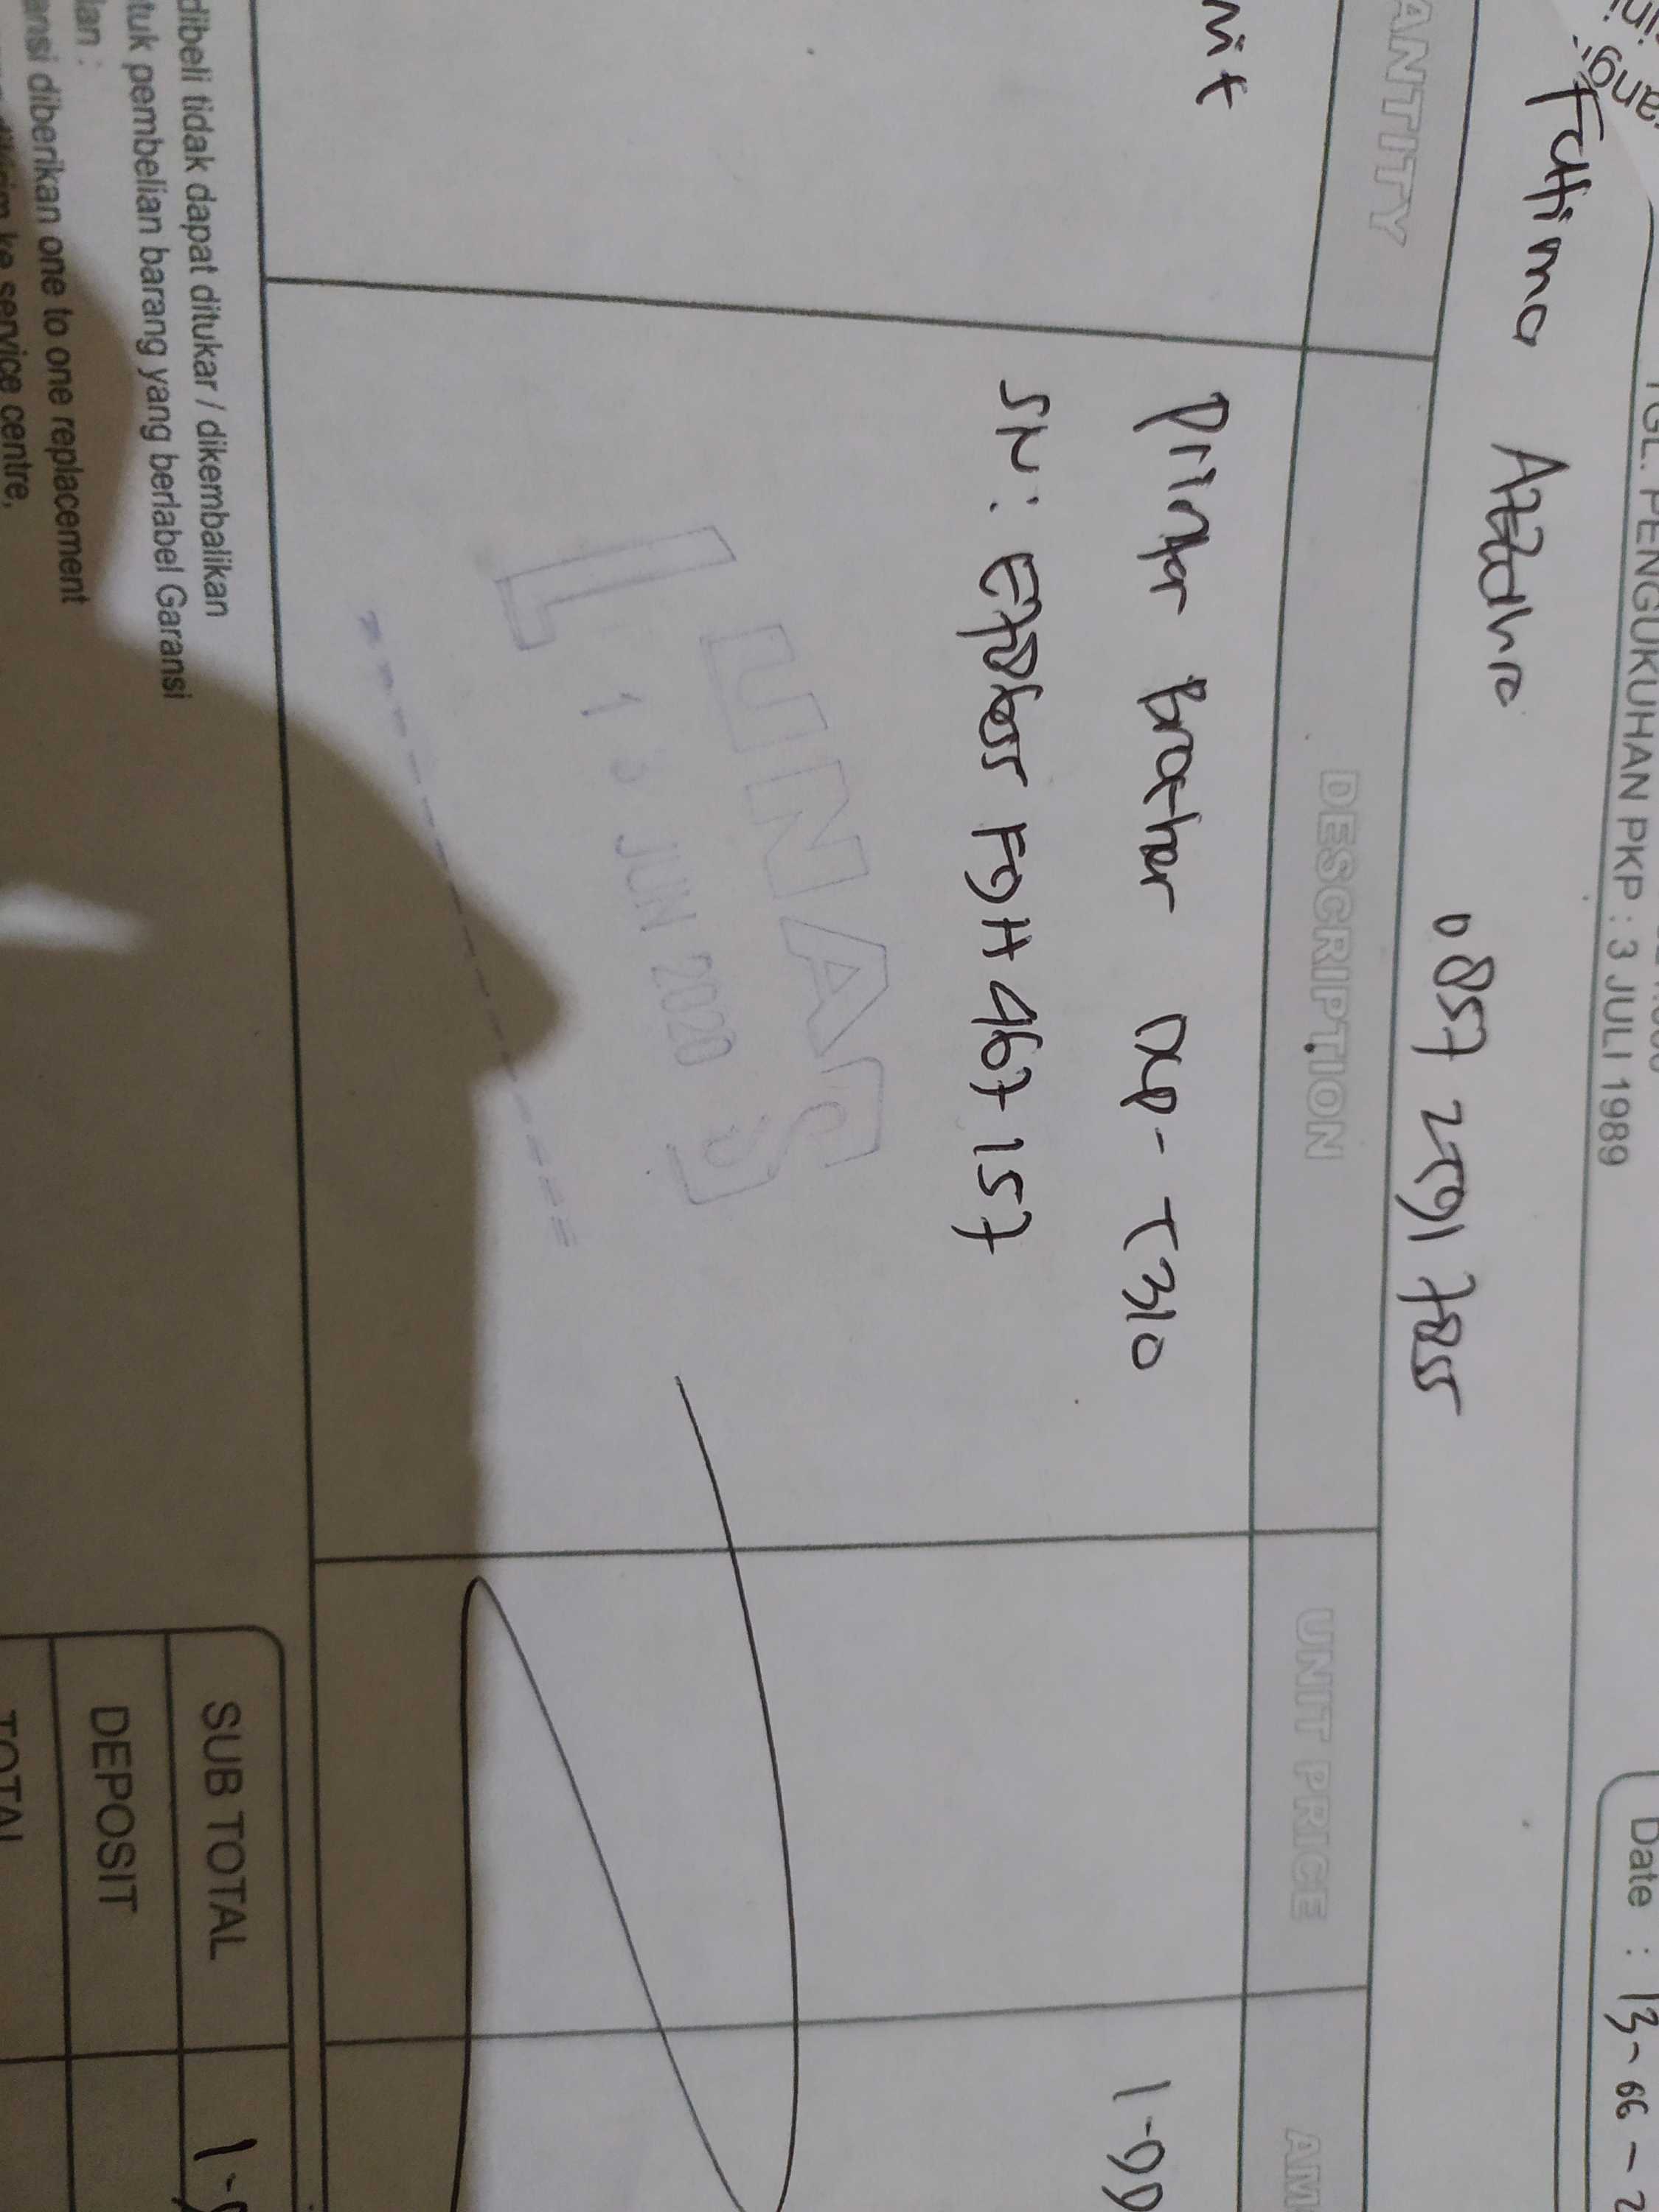 TGL. PENGUKUHAN PKP : 3 JULI 1989
Date : 13-06-2
Fatima Azzahra
0857 2591 7855
ANTITY
DESCRIPTION
UNIT PRICE
AM
nit
Printer Brother DCP-T310
SN: E78 F9H467157
LUNAS
JUN 2020
SUB TOTAL
DEPOSIT
TOTAL
dibeli tidak dapat ditukar / dikembalikan
tuk pembelian barang yang berlabel Garansi
lan :
ansi diberikan one to one replacement
ke service centre,